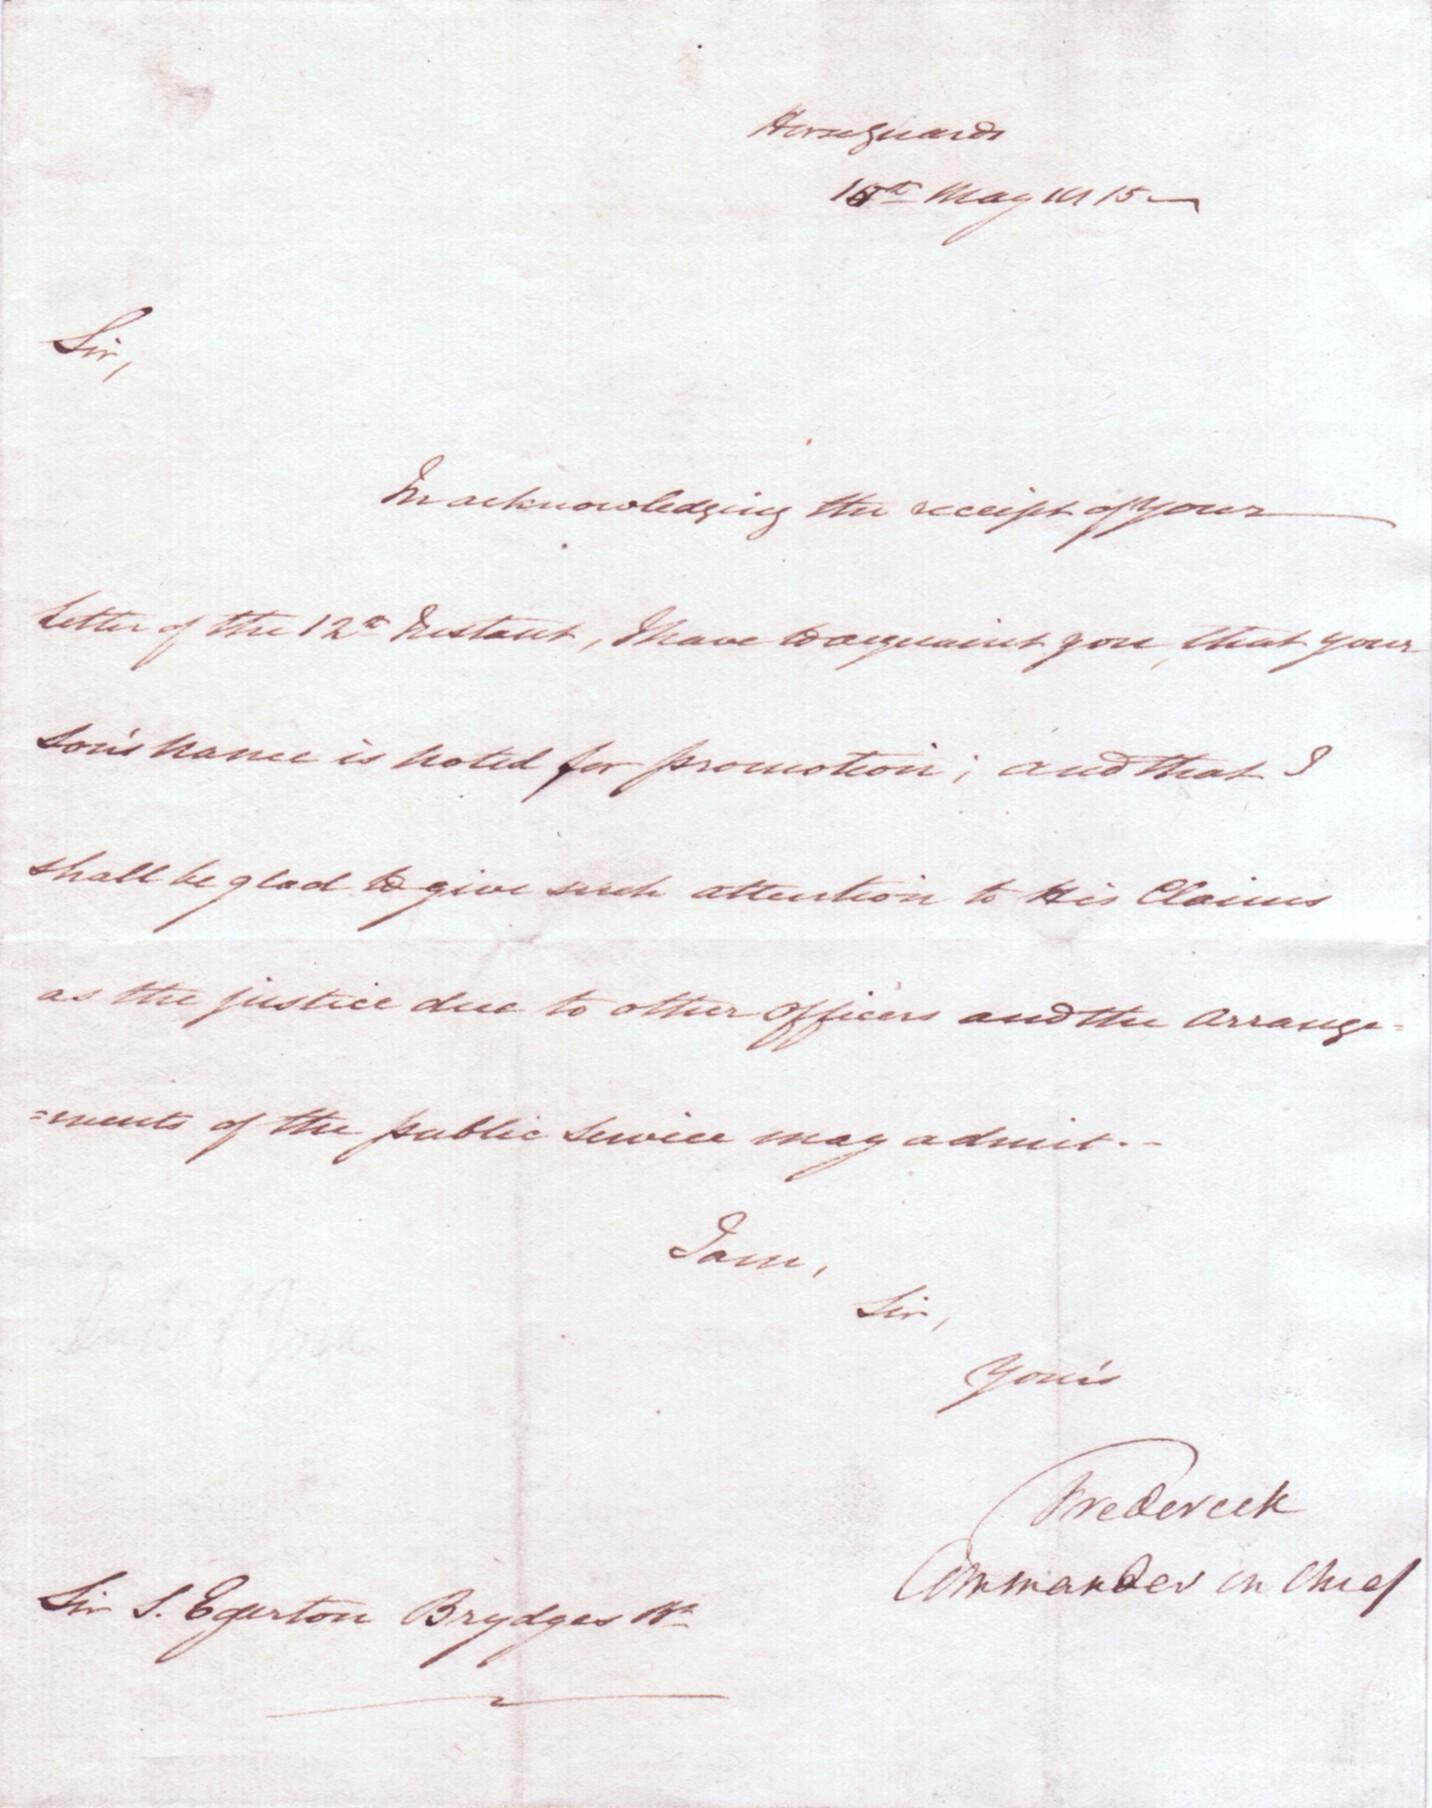 Horseguards
15th May 1815
Sir,
In acknowledging the receipt of Your
Letter of the 12th Instant, I have to acquaint you, that your
Son's Name is noted for promotion; and that I
shall be glad to give such attention to His Claims
as the justice due to other Officers and the Arrange=
=ments of the public Service may admit.-
I am,
Sir,
Your's
Frederick
Commander in Chief
Duke of York
Sir S. Egerton Brydges Bt